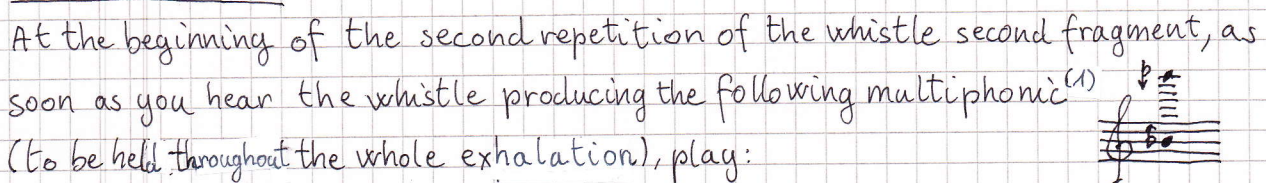 At the beginning of the second repetition of the whistle second fragment, as
soon as you hear the whistle producing the following multiphonic(1)
(to be held throughout the whole exhalation), play: